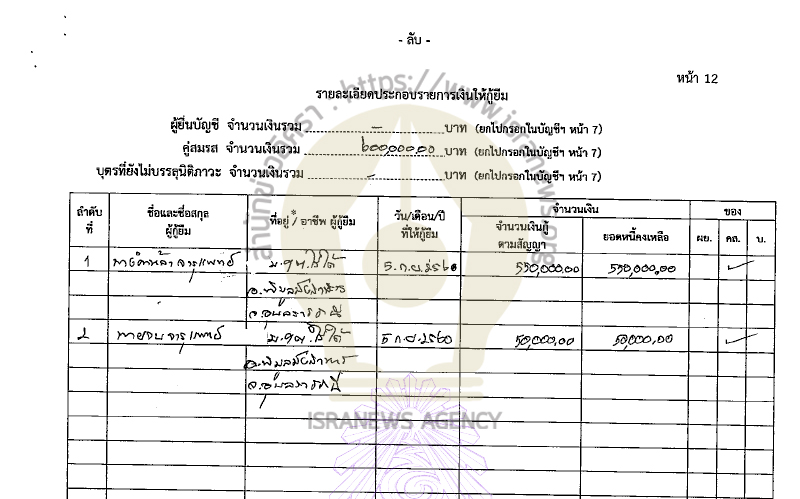 - ลับ -
หน้า 12
รายละเอียดประกอบรายการเงินให้กู้ยืม
ผู้ยื่นบัญชี จำนวนเงินรวม - บาท (ยกไปกรอกในบัญชีฯ หน้า 7)
คู่สมรส จำนวนเงินรวม ๖๐๐,๐๐๐.๐๐ บาท (ยกไปกรอกในบัญชีฯ หน้า 7)
บุตรที่ยังไม่บรรลุนิติภาวะ จำนวนเงินรวม - บาท (ยกไปกรอกในบัญชีฯ หน้า 7)
ลำดับที่ ชื่อและชื่อสกุล ผู้กู้ยืม ที่อยู่ * / อาชีพ ผู้กู้ยืม วัน/เดือน/ปี ที่ให้กู้ยืม จำนวนเงิน ของ
จำนวนเงินกู้ตามสัญญา ยอดหนี้คงเหลือ ผย. คส. บ.
1 จารุแพทย์ 5 ก.ย. ๒๕๖๐ 550,000.00 550,000.00 ✓
อ.พิบูลมังสาหาร
จ.อุบลราชธานี
2 จารุแพทย์ 5 ก.ย. ๒๕๖๐ 50,000.00 50,000.00 ✓
อ.พิบูลมังสาหาร
จ.อุบลราชธานี
สำนักข่าวอิศรา : https://www.isranews.org
ISRANEWS AGENCY